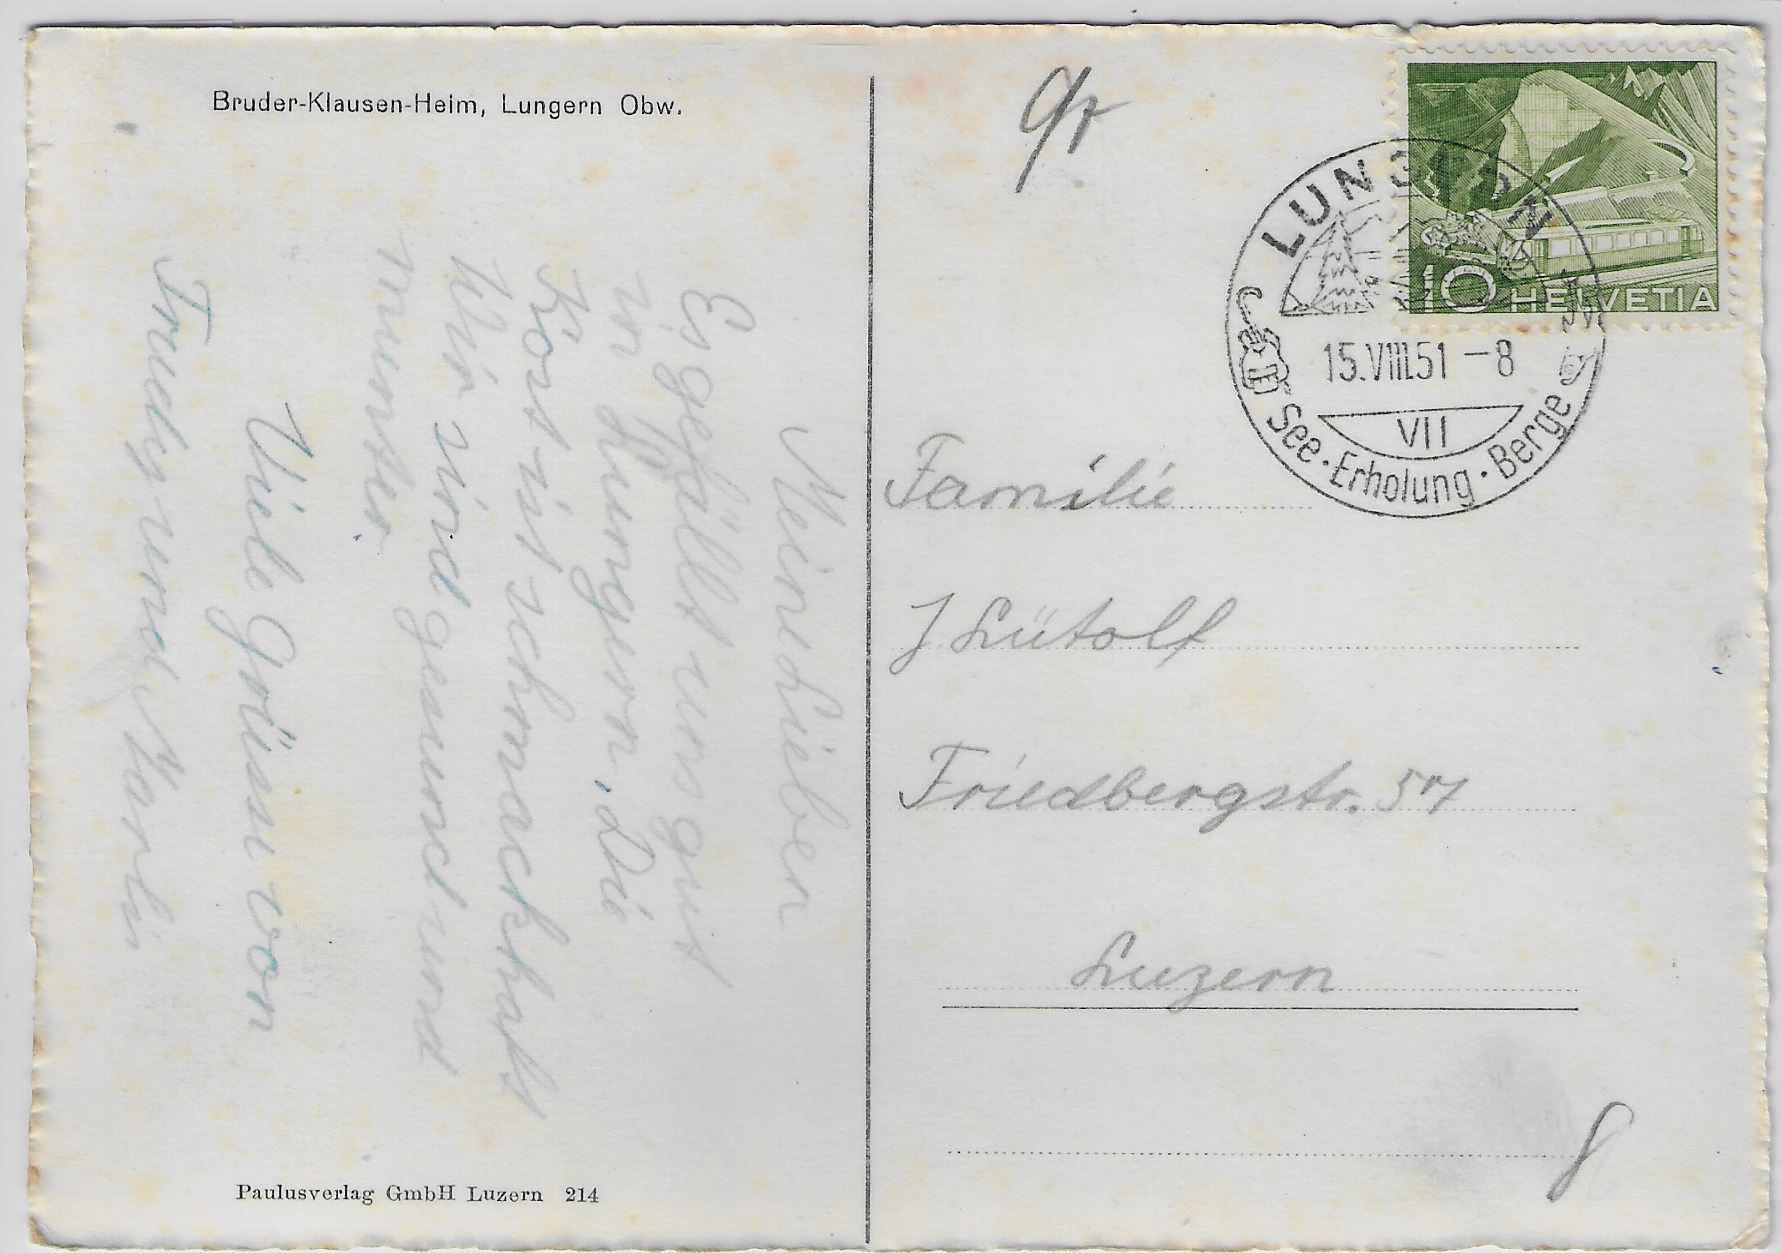 Bruder-Klausen-Heim, Lungern Obw.
Meine Lieben
Es gefällt uns gut
in Lungern. Die
Kost ist schmackhaft
Wir sind gesund und
munter.
Viele Grüsse von
Trudy und Marlis
Paulusverlag GmbH Luzern 214
HELVETIA
10
LUNGERN
15.VIII.51 –8
VII
See · Erholung · Berge
Familie
J Lütolf
Friedbergstr. 57
Luzern